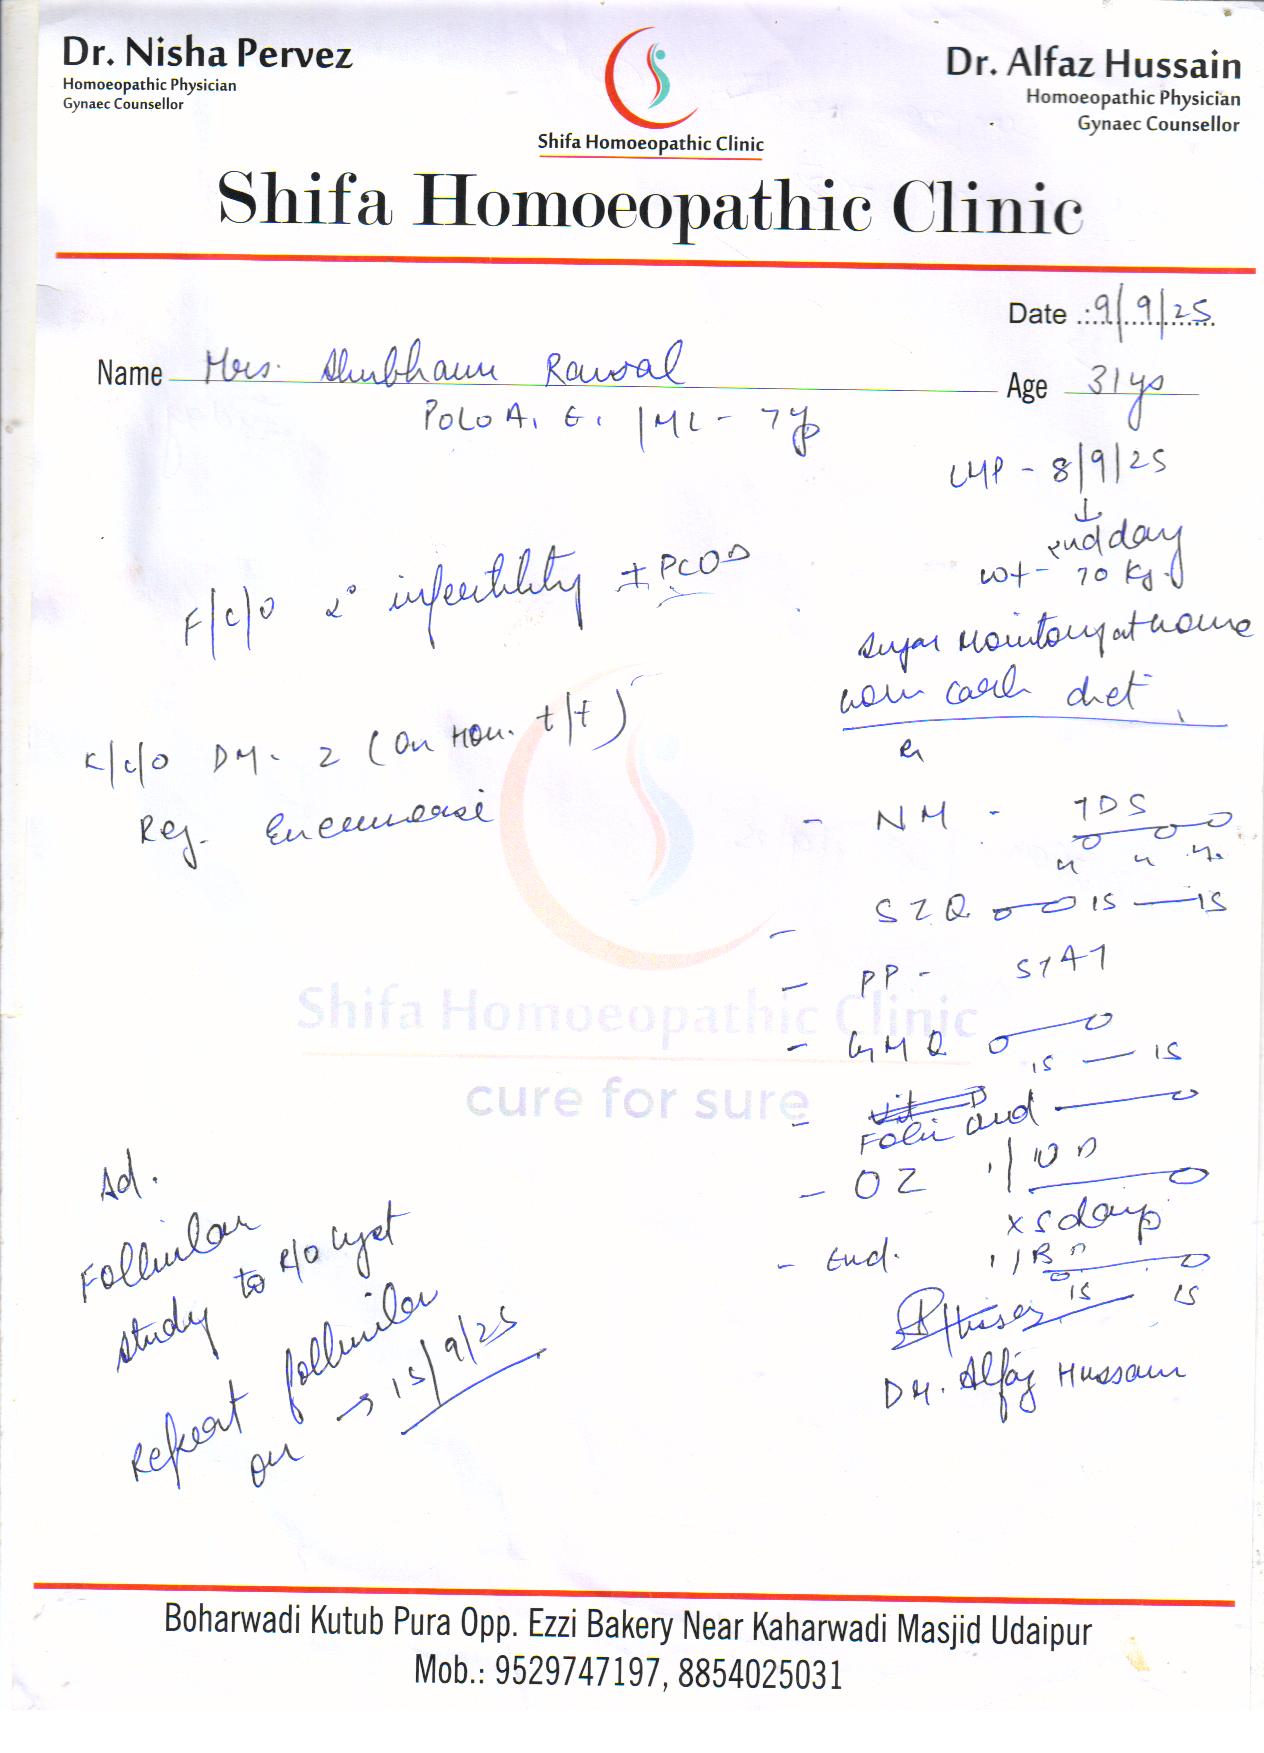 Dr. Nisha Pervez
Homoeopathic Physician
Gynaec Counsellor
Shifa Homoeopathic Clinic
Dr. Alfaz Hussain
Homoeopathic Physician
Gynaec Counsellor
Shifa Homoeopathic Clinic
Date .: 9/9/25
Name Mrs. Rawal
Age 31 ys
ML - 7 y
LMP - 8/9/25
day
wt - 70 Kg.
F/c/o 2° infertility ± PCOD
sugar at home
diet
K/c/o DM. 2 (on Hom. t/t)
Reg.
- NM - TDS
- SZQ 15 — 15
- PP - STAT
- GMQ
15 — 15
- Folic acid
- OZ 1/ OD
x 5 days
- End. 1/ BD
15 15
Dr. Alfaz Hussain
Ad.
Follicular
study to R/o cyst
Repeat follicular
on → 15/9/25
Shifa Homoeopathic Clinic
cure for sure
Boharwadi Kutub Pura Opp. Ezzi Bakery Near Kaharwadi Masjid Udaipur
Mob.: 9529747197, 8854025031